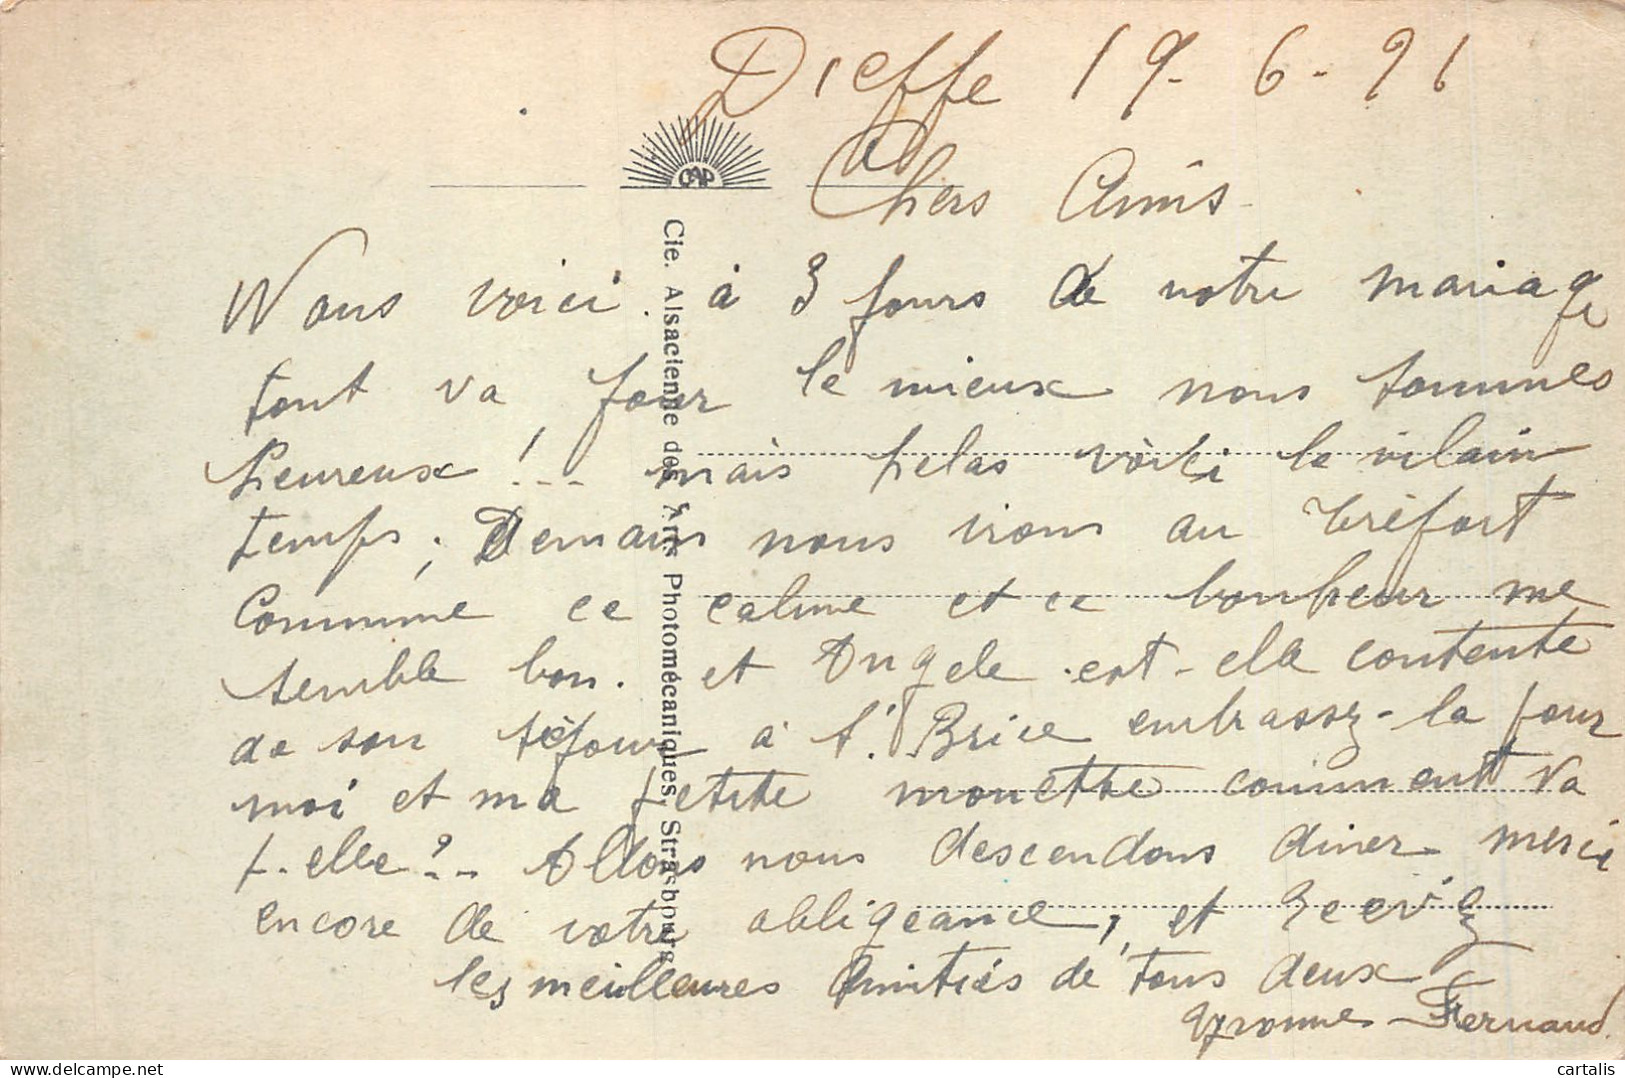 Dieppe 19-6-21
Chers Amis
Nous voici à 3 jours de notre mariage
tout va pour le mieux nous sommes
heureux !... mais helas voici le vilain
temps; Demain nous irons au Tréport
Comme ce calme et ce bonheur me
semble bon. et Angele est-elle contente
de son séjour à St. Brice embrassez-la pour
moi et ma petite mouette comment va
t-elle?.. Allons nous descendons diner merci
encore de votre obligeance, et recevez
les meilleures Amitiés de tous deux
Yvonne-Fernand
Cie. Alsacienne des Arts Photomécaniques, Strasbourg
CAP
cartalis